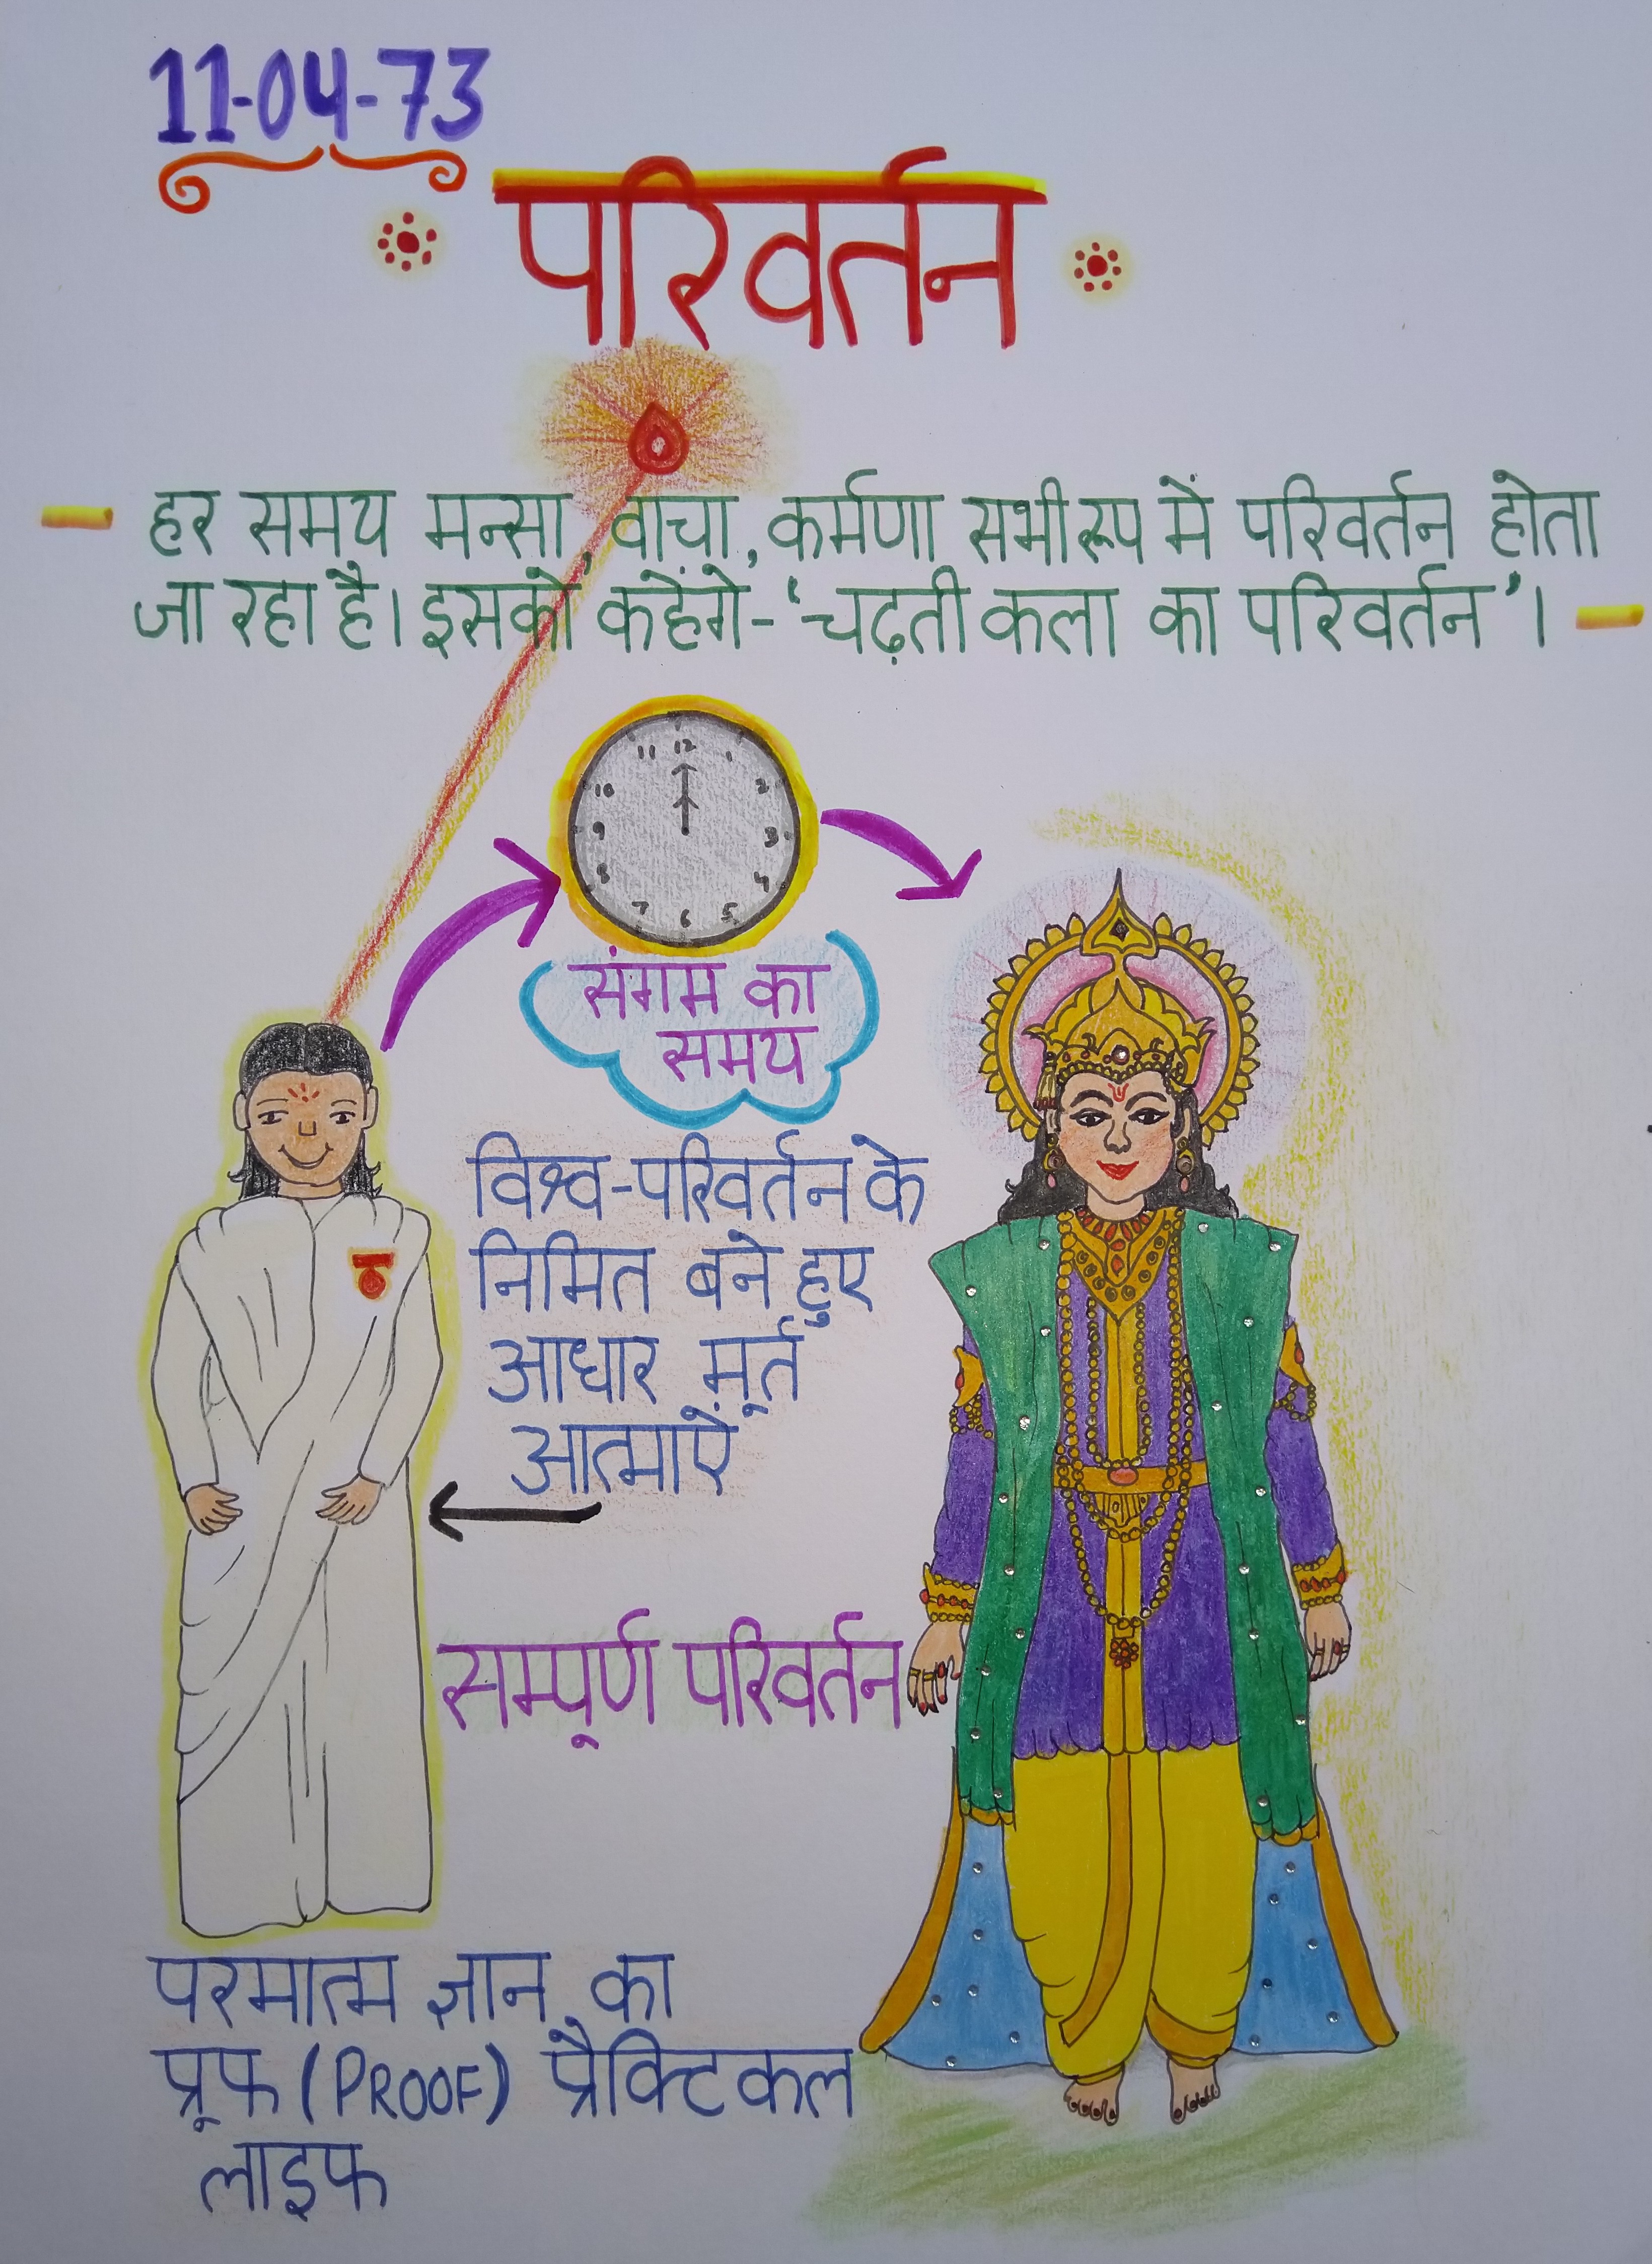 11-04-73
परिवर्तन
हर समय मन्सा, वाचा, कर्मणा सभी रूप में परिवर्तन होता
जा रहा है। इसको कहेंगे- ‘चढ़ती कला का परिवर्तन’।
11 12 1
10 2
9 3
8 4
7 6 5
संगम का
समय
विश्व-परिवर्तन के
निमित बने हुए
आधार मूर्त
आत्माऐं
सम्पूर्ण परिवर्तन
परमात्म ज्ञान का
प्रूफ (PROOF) प्रैक्टिकल
लाइफ